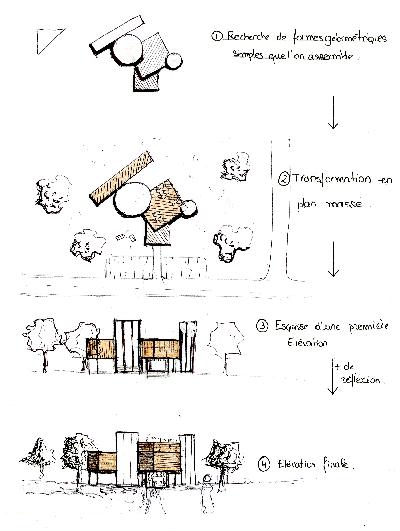 ① Recherche de formes géométriques
simples que l'on assemble.
② Transformation en
plan masse.
③ Esquisse d'une première
Elévation
+ de
réflexion.
④ Elévation finale.